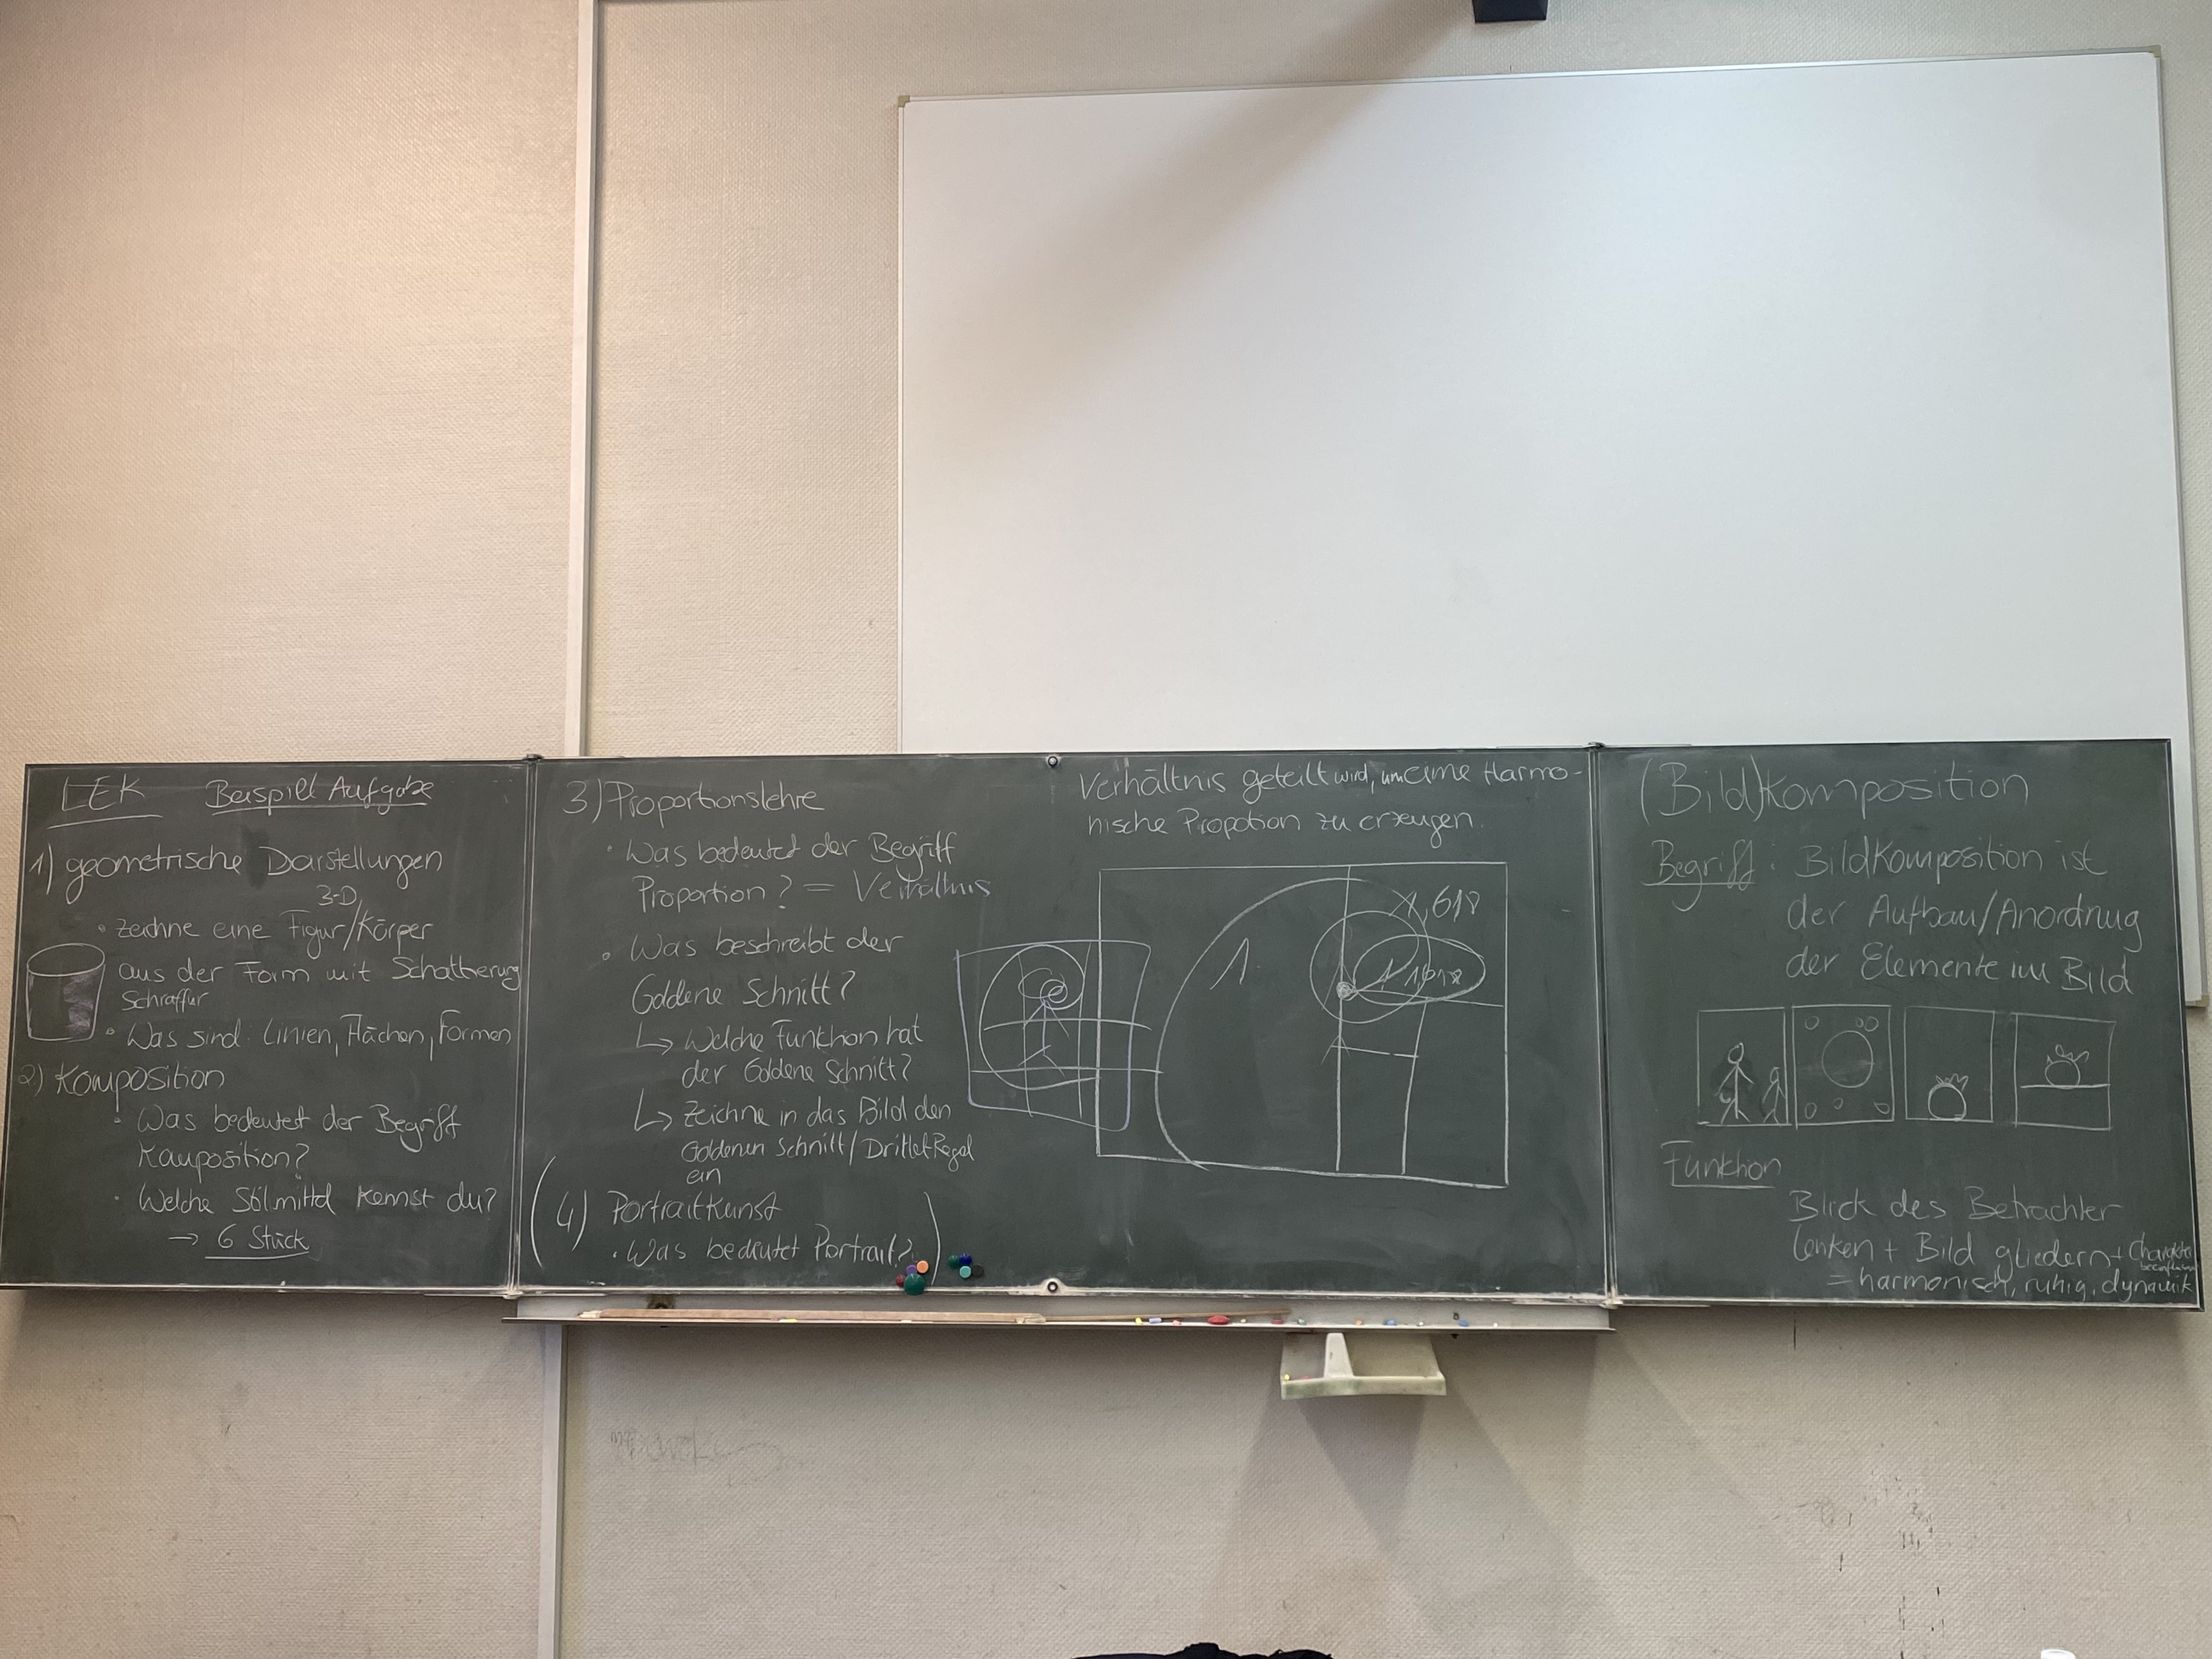 LEK Beispiel Aufgabe
1) geometrische Darstellungen
3-D
• zeichne eine Figur/Körper
aus der Form mit Schattierung
Schraffur
• Was sind: Linien, Flächen, Formen
2) Komposition
• Was bedeutet der Begriff
Komposition?
• Welche Stilmittel kennst du?
→ 6 Stück
3) Proportionslehre
• Was bedeutet der Begriff
Proportion? = Verhältnis
• Was beschreibt der
Goldene Schnitt?
↳ Welche Funktion hat
der Goldene Schnitt?
↳ Zeichne in das Bild den
Goldenen Schnitt/Drittel Regel
ein
(4) Portraitkunst
• Was bedeutet Portrait?)
Verhältnis geteilt wird, um eine Harmo-
nische Propotion zu erzeugen.
1,618
1
(Bild)komposition
Begriff: Bildkomposition ist
der Aufbau/Anordnug
der Elemente im Bild
Funktion
Blick des Betrachter
lenken + Bild gliedern + Charakter
= harmonisch, ruhig, dynamik